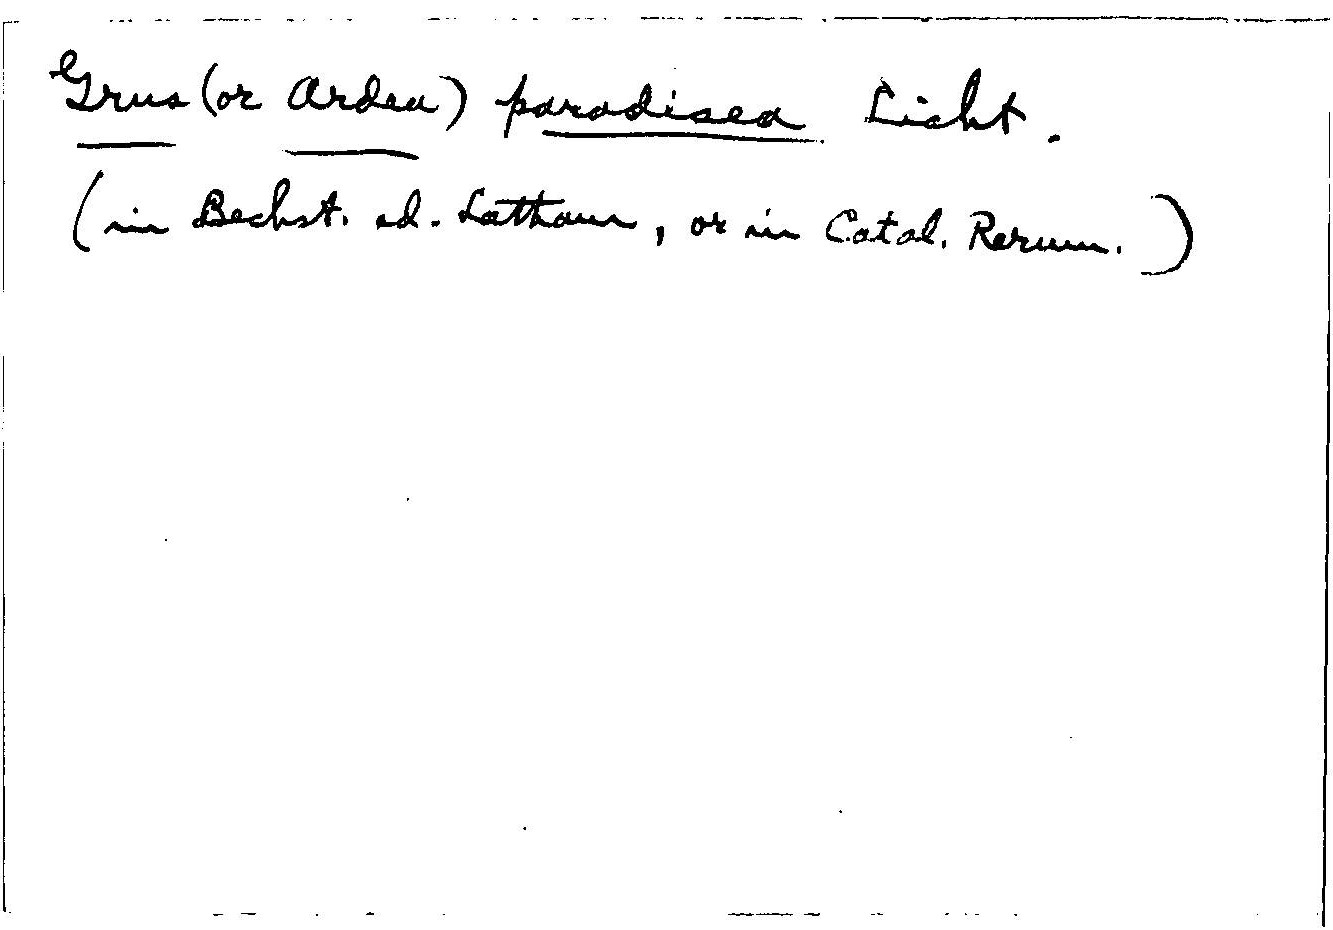 Grus (or Ardea) paradisea Licht.
(in Bechst. ed. Latham, or in Catal. Rerum.)